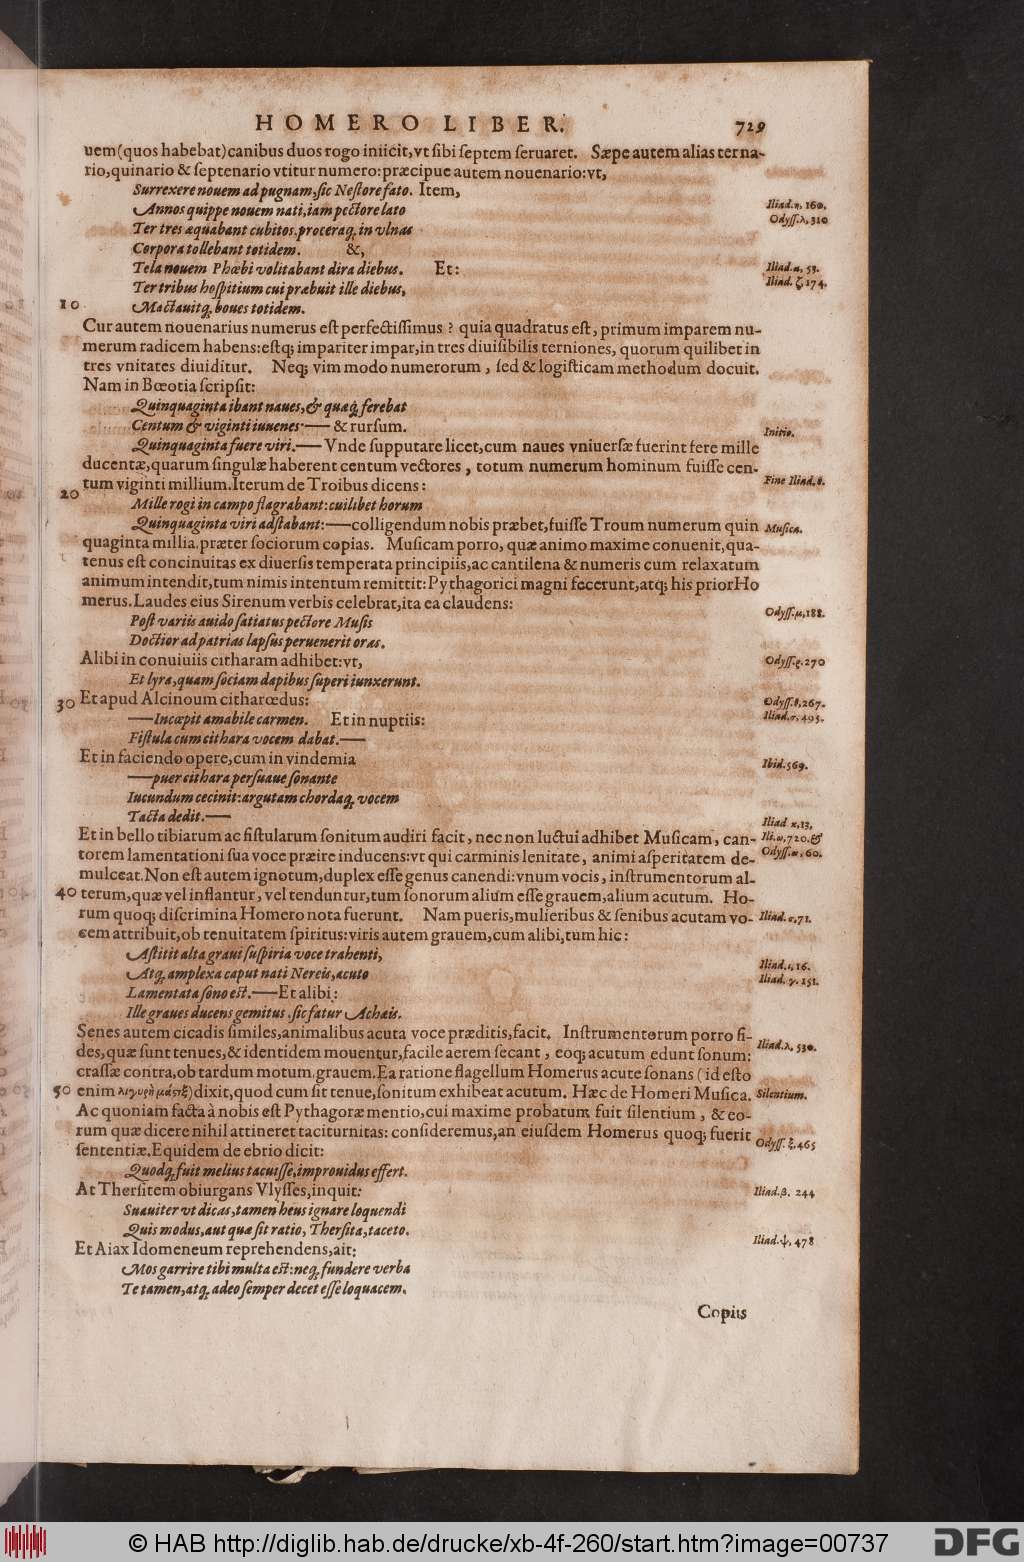 HOMERO LIBER. 729
uem(quos habebat)canibus duos rogo iniicit,vt sibi septem seruaret. Sæpe autem alias terna-
rio,quinario & septenario vtitur numero:præcipue autem nouenario:vt,
Surrexere nouem ad pugnam,sic Nestore fato. Item,
Annos quippe nouem nati,iam pectore lato
Iliad.η. 160.
Ter tres æquabant cubitos.proceraq; in vlnas
Odyss.λ.310
Corpora tollebant totidem. &,
Tela nouem Phœbi volitabant dira diebus. Et:
Iliad.α. 53.
Ter tribus hospitium cui præbuit ille diebus,
Iliad. ζ.174.
10 Mactauitq; boues totidem.
Cur autem nouenarius numerus est perfectissimus? quia quadratus est, primum imparem nu-
merum radicem habens:estq; impariter impar,in tres diuisibilis terniones, quorum quilibet in
tres vnitates diuiditur. Neq; vim modo numerorum, sed & logisticam methodum docuit.
Nam in Bœotia scripsit:
Quinquaginta ibant naues,& quæq; ferebat
Centum & viginti iuuenes·— & rursum.
Initio.
Quinquaginta fuere viri.— Vnde supputare licet,cum naues vniuersæ fuerint fere mille
ducentæ,quarum singulæ haberent centum vectores, totum numerum hominum fuisse cen-
20 tum viginti millium.Iterum de Troibus dicens:
Fine Iliad.θ.
Mille rogi in campo flagrabant:cuilibet horum
Quinquaginta viri adstabant:—colligendum nobis præbet,fuisse Troum numerum quin
Musica.
quaginta millia.præter sociorum copias. Musicam porro, quæ animo maxime conuenit,qua-
tenus est concinuitas ex diuersis temperata principiis,ac cantilena & numeris cum relaxatum
animum intendit,tum nimis intentum remittit:Pythagorici magni fecerunt,atq; his prior Ho
merus.Laudes eius Sirenum verbis celebrat,ita ea claudens:
Odyss.μ,188.
Post variis auido satiatus pectore Musis
Doctior ad patrias lapsus peruenerit oras.
Alibi in conuiuiis citharam adhibet:vt,
Odyss.ρ.270
Et lyra,quam sociam dapibus superi iunxerunt.
30 Et apud Alcinoum citharœdus:
Odyss.θ,267.
—Incœpit amabile carmen. Et in nuptiis:
Iliad.σ.495.
Fistula cum cithara vocem dabat.—
Et in faciendo opere,cum in vindemia
Ibid.569.
—puer cithara persuaue sonante
Iucundum cecinit:argutam chordaq; vocem
Tacta dedit.—
Iliad κ,13,
Et in bello tibiarum ac fistularum sonitum audiri facit, nec non luctui adhibet Musicam, can-
Ili.ω,720.&
torem lamentationi sua voce præire inducens:vt qui carminis lenitate, animi asperitatem de-
Odyss.ω.60.
mulceat.Non est autem ignotum,duplex esse genus canendi:vnum vocis, instrumentorum al-
40 terum,quæ vel inflantur, vel tenduntur,tum sonorum alium esse grauem,alium acutum. Ho-
rum quoq; discrimina Homero nota fuerunt. Nam pueris,mulieribus & senibus acutam vo-
Iliad.σ,71.
cem attribuit,ob tenuitatem spiritus:viris autem grauem,cum alibi,tum hic:
Astitit alta graui suspiria voce trahenti,
Atq; amplexa caput nati Nereis,acuto
Iliad.ι,16.
Lamentata sono est.—Et alibi:
Iliad. γ.151.
Ille graues ducens gemitus,sic fatur Achais.
Senes autem cicadis similes,animalibus acuta voce præditis,facit. Instrumentorum porro fi-
Iliad.λ, 530.
des,quæ sunt tenues,& identidem mouentur,facile aerem secant, eoq; acutum edunt sonum:
crassæ contra,ob tardum motum.grauem.Ea ratione flagellum Homerus acute sonans (id esto
50 enim λιγυρὴ μάστιξ)dixit,quod cum sit tenue,sonitum exhibeat acutum. Hæc de Homeri Musica.
Silentium.
Ac quoniam facta à nobis est Pythagoræ mentio,cui maxime probatum fuit silentium, & eo-
rum quæ dicere nihil attineret taciturnitas: consideremus,an eiusdem Homerus quoq; fuerit
sententiæ.Equidem de ebrio dicit:
Odyss.ξ,465
Quodq; fuit melius tacuisse,improuidus effert.
At Thersitem obiurgans Vlysses,inquit:
Iliad.β. 244
Suauiter vt dicas,tamen heus ignare loquendi
Quis modus,aut quæ sit ratio, Thersita,taceto.
Et Aiax Idomeneum reprehendens,ait:
Iliad.ψ, 478
Mos garrire tibi multa est:neq; fundere verba
Te tamen,atq; adeo semper decet esse loquacem.
Copiis
© HAB http://diglib.hab.de/drucke/xb-4f-260/start.htm?image=00737
DFG